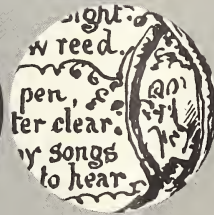 sight.
w reed.
pen,
ter clear.
y songs
to hear